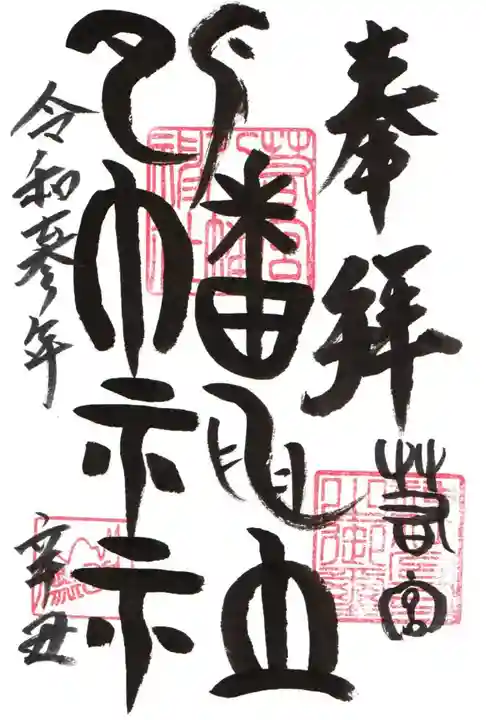 奉拝
若宮
八幡神社
令和参年
辛丑